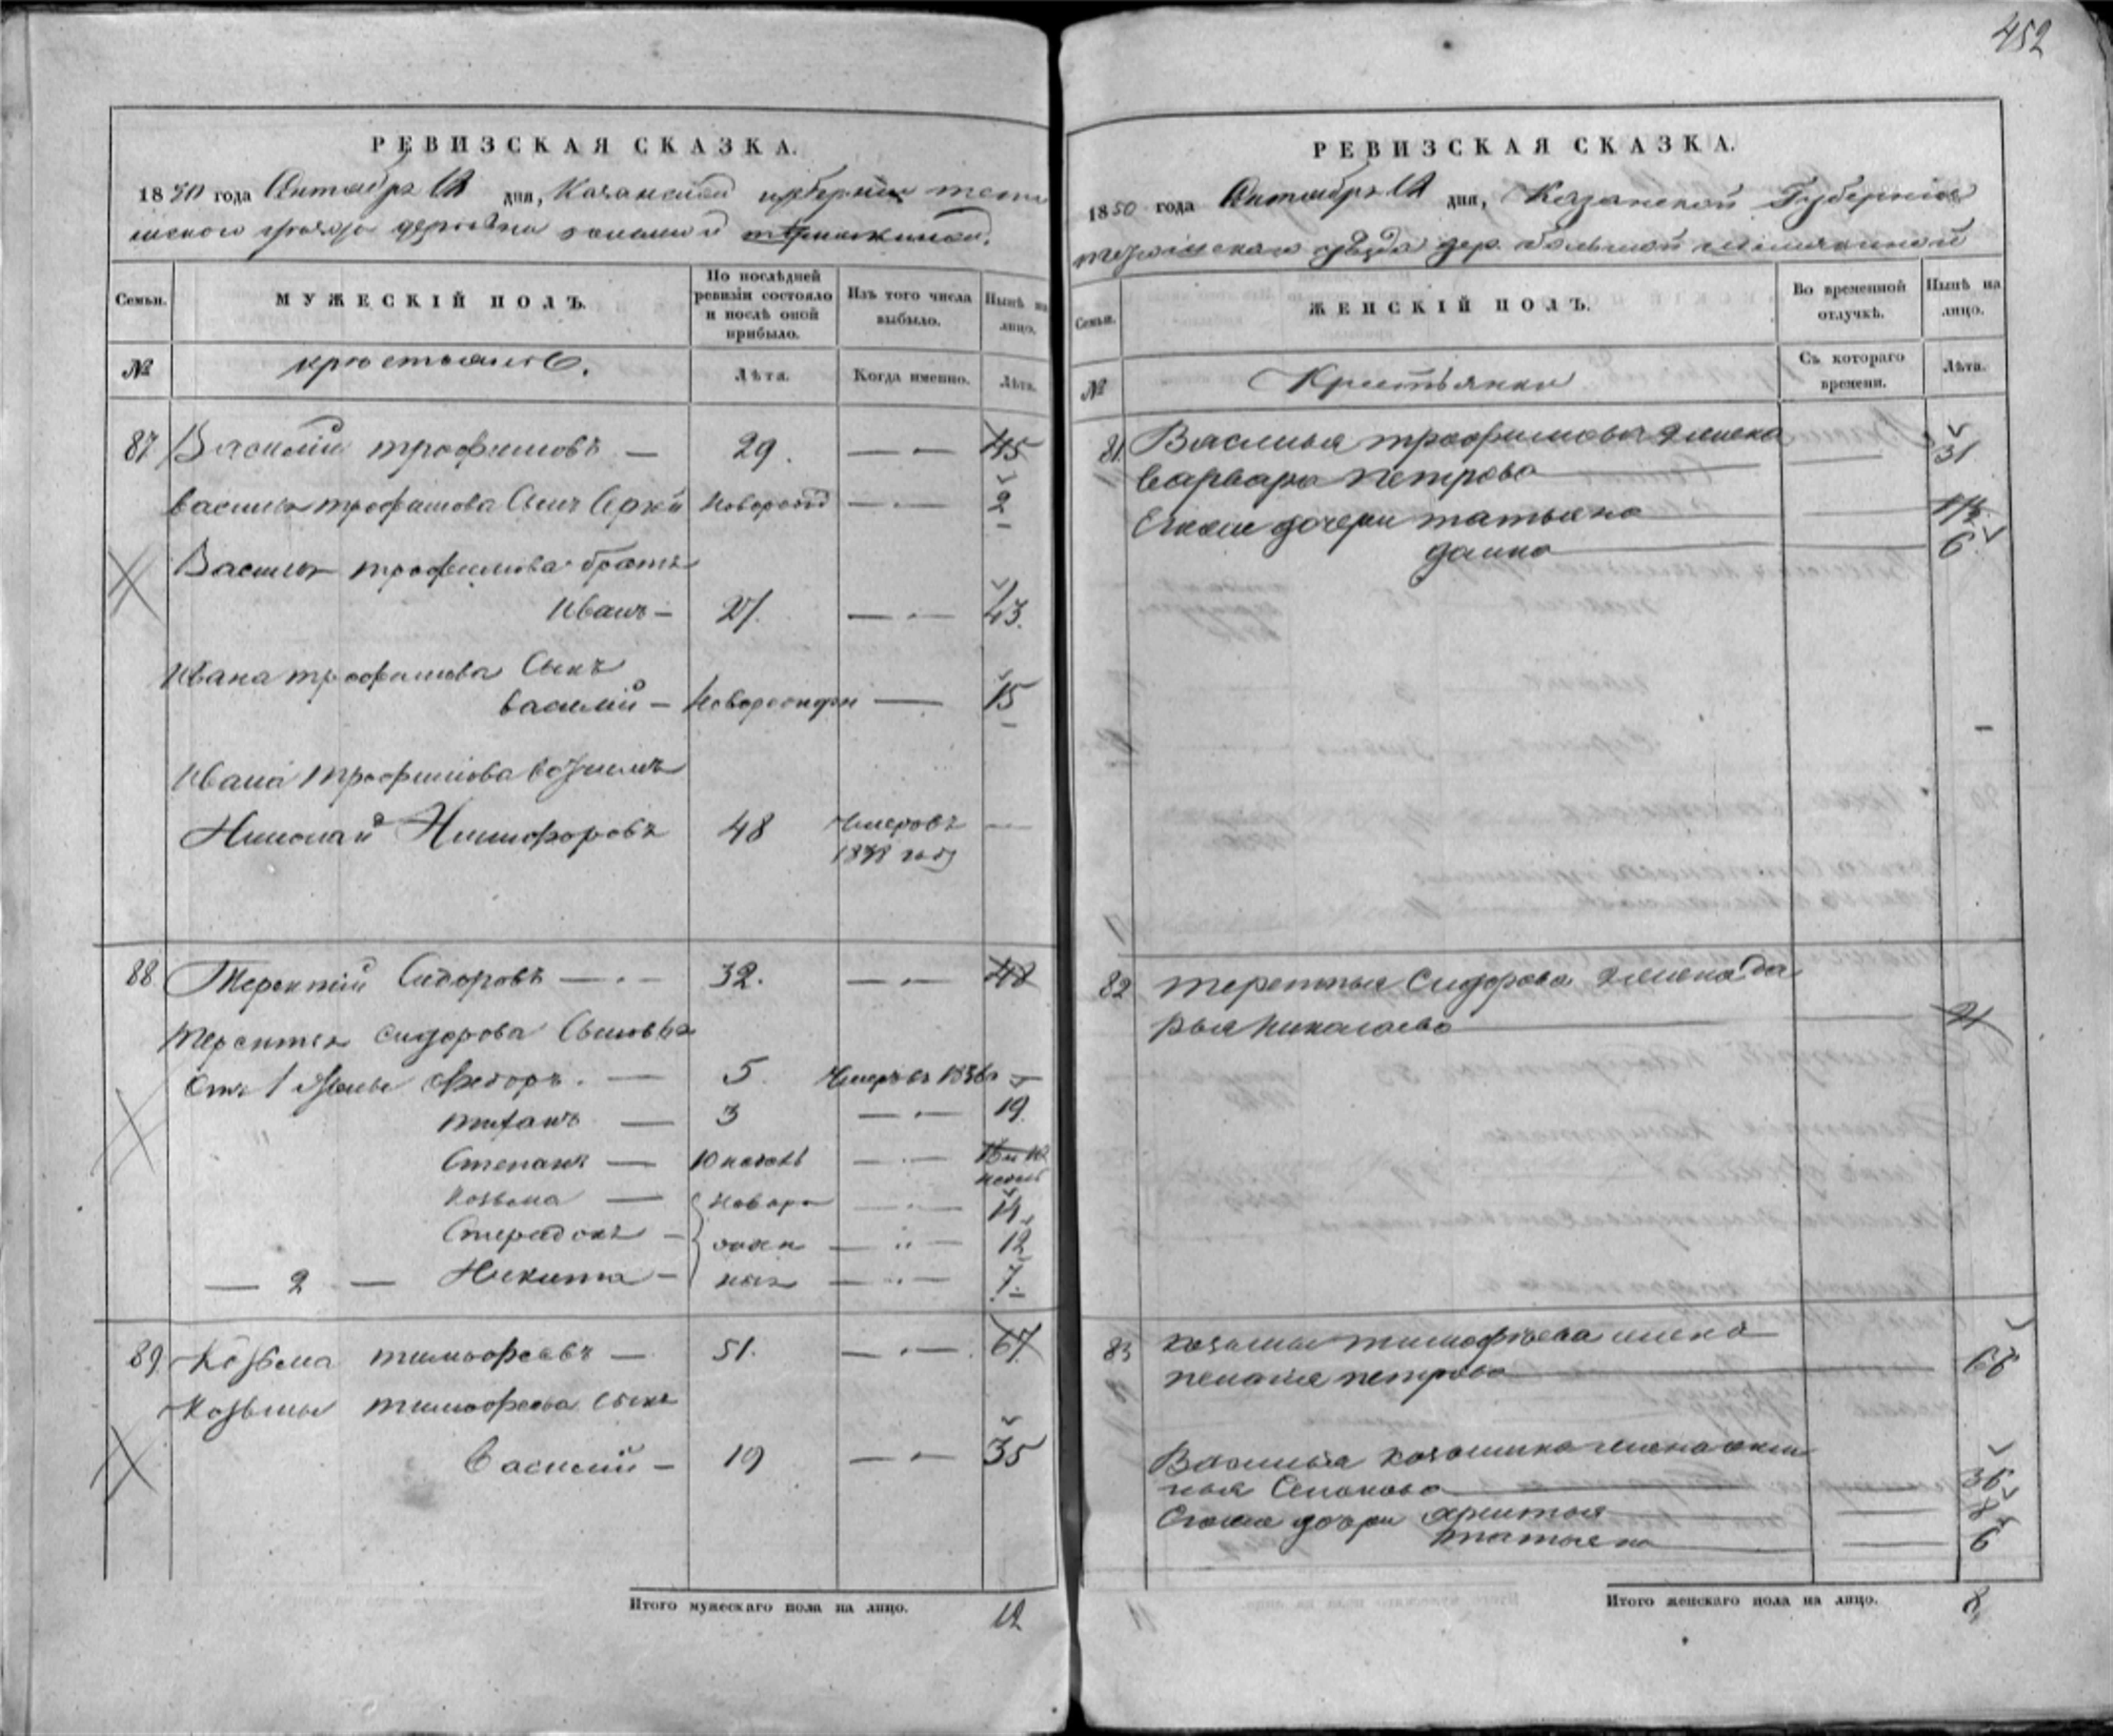 452
РЕВИЗСКАЯ СКАЗКА.
1850 года Октября 12 дня, Казанской губернии тетю
шскаго уезда деревни большой
Семьи.
МУЖЕСКІЙ ПОЛЪ.
По послѣдней ревизіи состояло и послѣ оной прибыло.
Изъ того числа выбыло.
Нынѣ на лицо.
№
крестьяне.
Лѣта.
Когда именно.
Лѣта.
87 Василій трофимовъ — 29. — 45
василья трофимова Сынъ новорожд — 2
Василья трофимова братъ
Иванъ — 27. — 43.
Ивана трофимова Сынъ
василій — новорожден — 15
Ивана трофимова
Николай Никифоровъ 48 Умеръ въ —
1838 году
88 Терентій Сидоровъ — 32. — 48
Терентья сидорова Сыновья
отъ 1 жены Федоръ. — 5. Умеръ въ 1836 —
— 3 — 19.
Степанъ — 10 недель —
Козьма — новоро — 14
— жден — 12
— 2 — Никита — ные — 7.
89 Козьма тимофеевъ — 51. — 67.
Козьмы тимофеева сынъ
Василій — 19 — 35
Итого мужескаго пола на лицо. 12
РЕВИЗСКАЯ СКАЗКА.
1850 года Октября 12 дня, Казанской Губерніи
тетюшскаго уѣзда дер. большой
Семьи.
ЖЕНСКІЙ ПОЛЪ.
Во временной отлучкѣ.
Нынѣ на лицо.
№
Крестьянки
Съ котораго времени.
Лѣта.
81. Василья трофимова жена
варвара петрова — 31
дочери татьяна —
— 6.
82 терентья Сидорова жена да
рья николаева —
83 козьмы тимофѣева жена
пелагея петрова — 66
Василья козьмина жена
— 36
дочери —
татьяна — 6
Итого женскаго пола на лицо. 8